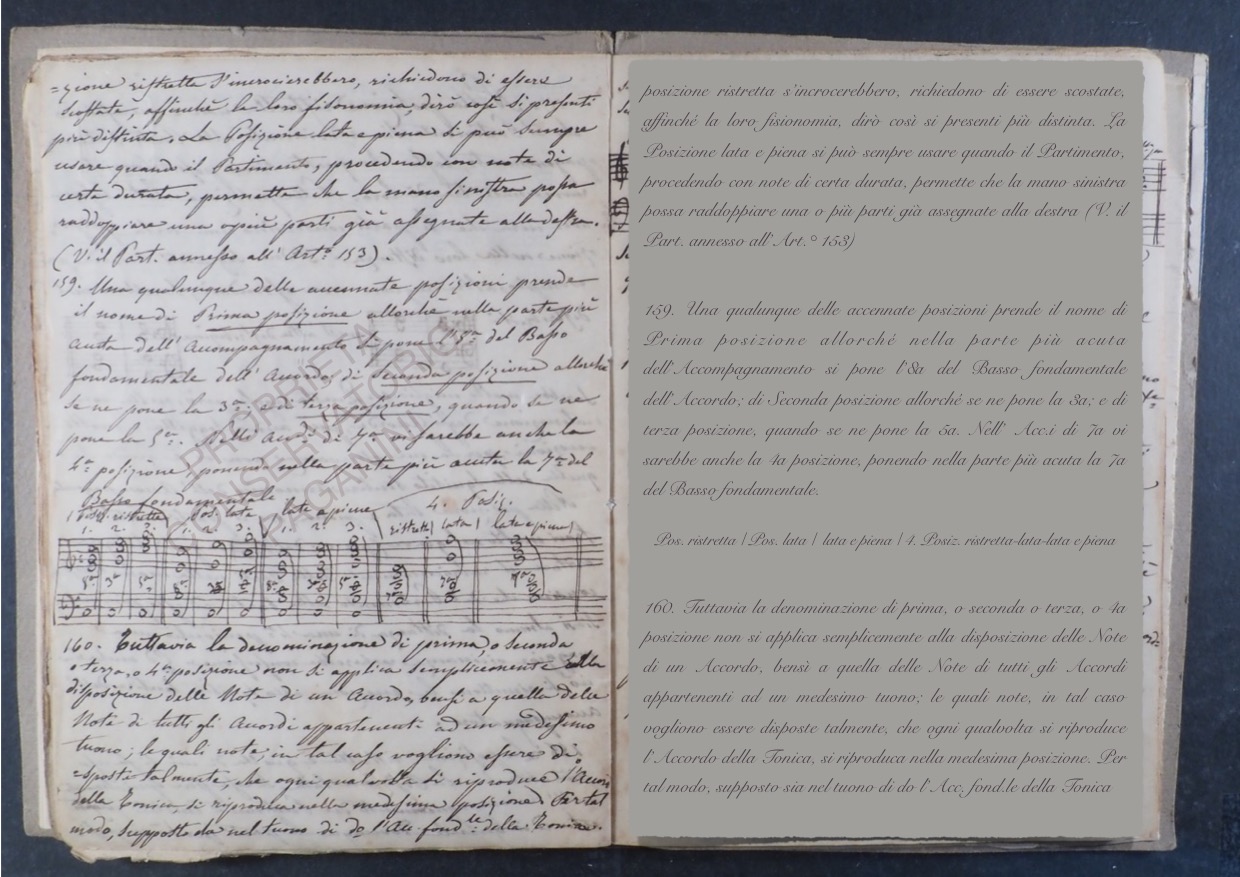 =zione ristretta s'incrocierebbero, richiedono di essere
scostate, affinchè la loro fisonomia, dirò così si presenti
più distinta. La Posizione lata e piena si può sempre
usare quando il Partimento, procedendo con note di
certa durata, permetta che la mano sinistra possa
raddoppiare una o più parti già assegnate alla destra.
(V. il Part. annesso all'Art.° 153).
159. Una qualunque delle accennate posizioni prende
il nome di Prima posizione allorchè nella parte più
acuta dell'Accompagnamento si pone l'8.a del Basso
fondamentale dell'Accordo; di Seconda posizione allorchè
se ne pone la 3.a; e di terza posizione, quando se ne
pone la 5.a. Nell' Acc.i di 7.a vi sarebbe anche la
4.a posizione, ponendo nella parte più acuta la 7.a del
Basso fondamentale
Pos. ristretta Pos. lata late e piene 4. Posiz.
1. 2. 3. 1. 2. 3. 1. 2. 3. ristretta lata late e piena
8.a 3.a 5.a
160. Tuttavia la denominazione di prima, o seconda
o terza, o 4.a posizione non si applica semplicemente alla
disposizione delle Note di un Accordo, bensì a quella delle
Note di tutti gli Accordi appartenenti ad un medesimo
tuono; le quali note, in tal caso vogliono essere di=
=sposte talmente, che ogni qualvolta si riproduce l'Accor.
della Tonica, si riproduca nella medesima posizione. Per tal
modo, supposto sia nel tuono di do l'Acc. fond.le della Tonica.
PROPRIETA'
CONSERVATORIO
PAGANINI
posizione ristretta s'incrocerebbero, richiedono di essere scostate,
affinché la loro fisionomia, dirò così si presenti più distinta. La
Posizione lata e piena si può sempre usare quando il Partimento,
procedendo con note di certa durata, permette che la mano sinistra
possa raddoppiare una o più parti già assegnate alla destra (V. il
Part. annesso all'Art.° 153)
159. Una qualunque delle accennate posizioni prende il nome di
Prima posizione allorché nella parte più acuta
dell'Accompagnamento si pone l'8a del Basso fondamentale
dell'Accordo; di Seconda posizione allorché se ne pone la 3a; e di
terza posizione, quando se ne pone la 5a. Nell' Acc.i di 7a vi
sarebbe anche la 4a posizione, ponendo nella parte più acuta la 7a
del Basso fondamentale.
Pos. ristretta | Pos. lata | lata e piena | 4. Posiz. ristretta-lata-lata e piena
160. Tuttavia la denominazione di prima, o seconda o terza, o 4a
posizione non si applica senplicemente alla disposizione delle Note
di un Accordo, bensì a quella delle Note di tutti gli Accordi
appartenenti ad un medesimo tuono; le quali note, in tal caso
vogliono essere disposte talmente, che ogni qualvolta si riproduce
l'Accordo della Tonica, si riproduca nella medesima posizione. Per
tal modo, supposto sia nel tuono di do l'Acc. fond.le della Tonica